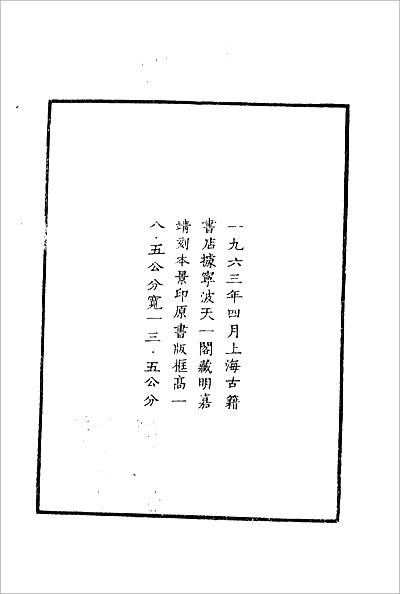 一九六三年四月上海古籍
書店據寧波天一閣藏明嘉
靖刻本景印原書版框高一
八·五公分寬一三·五公分